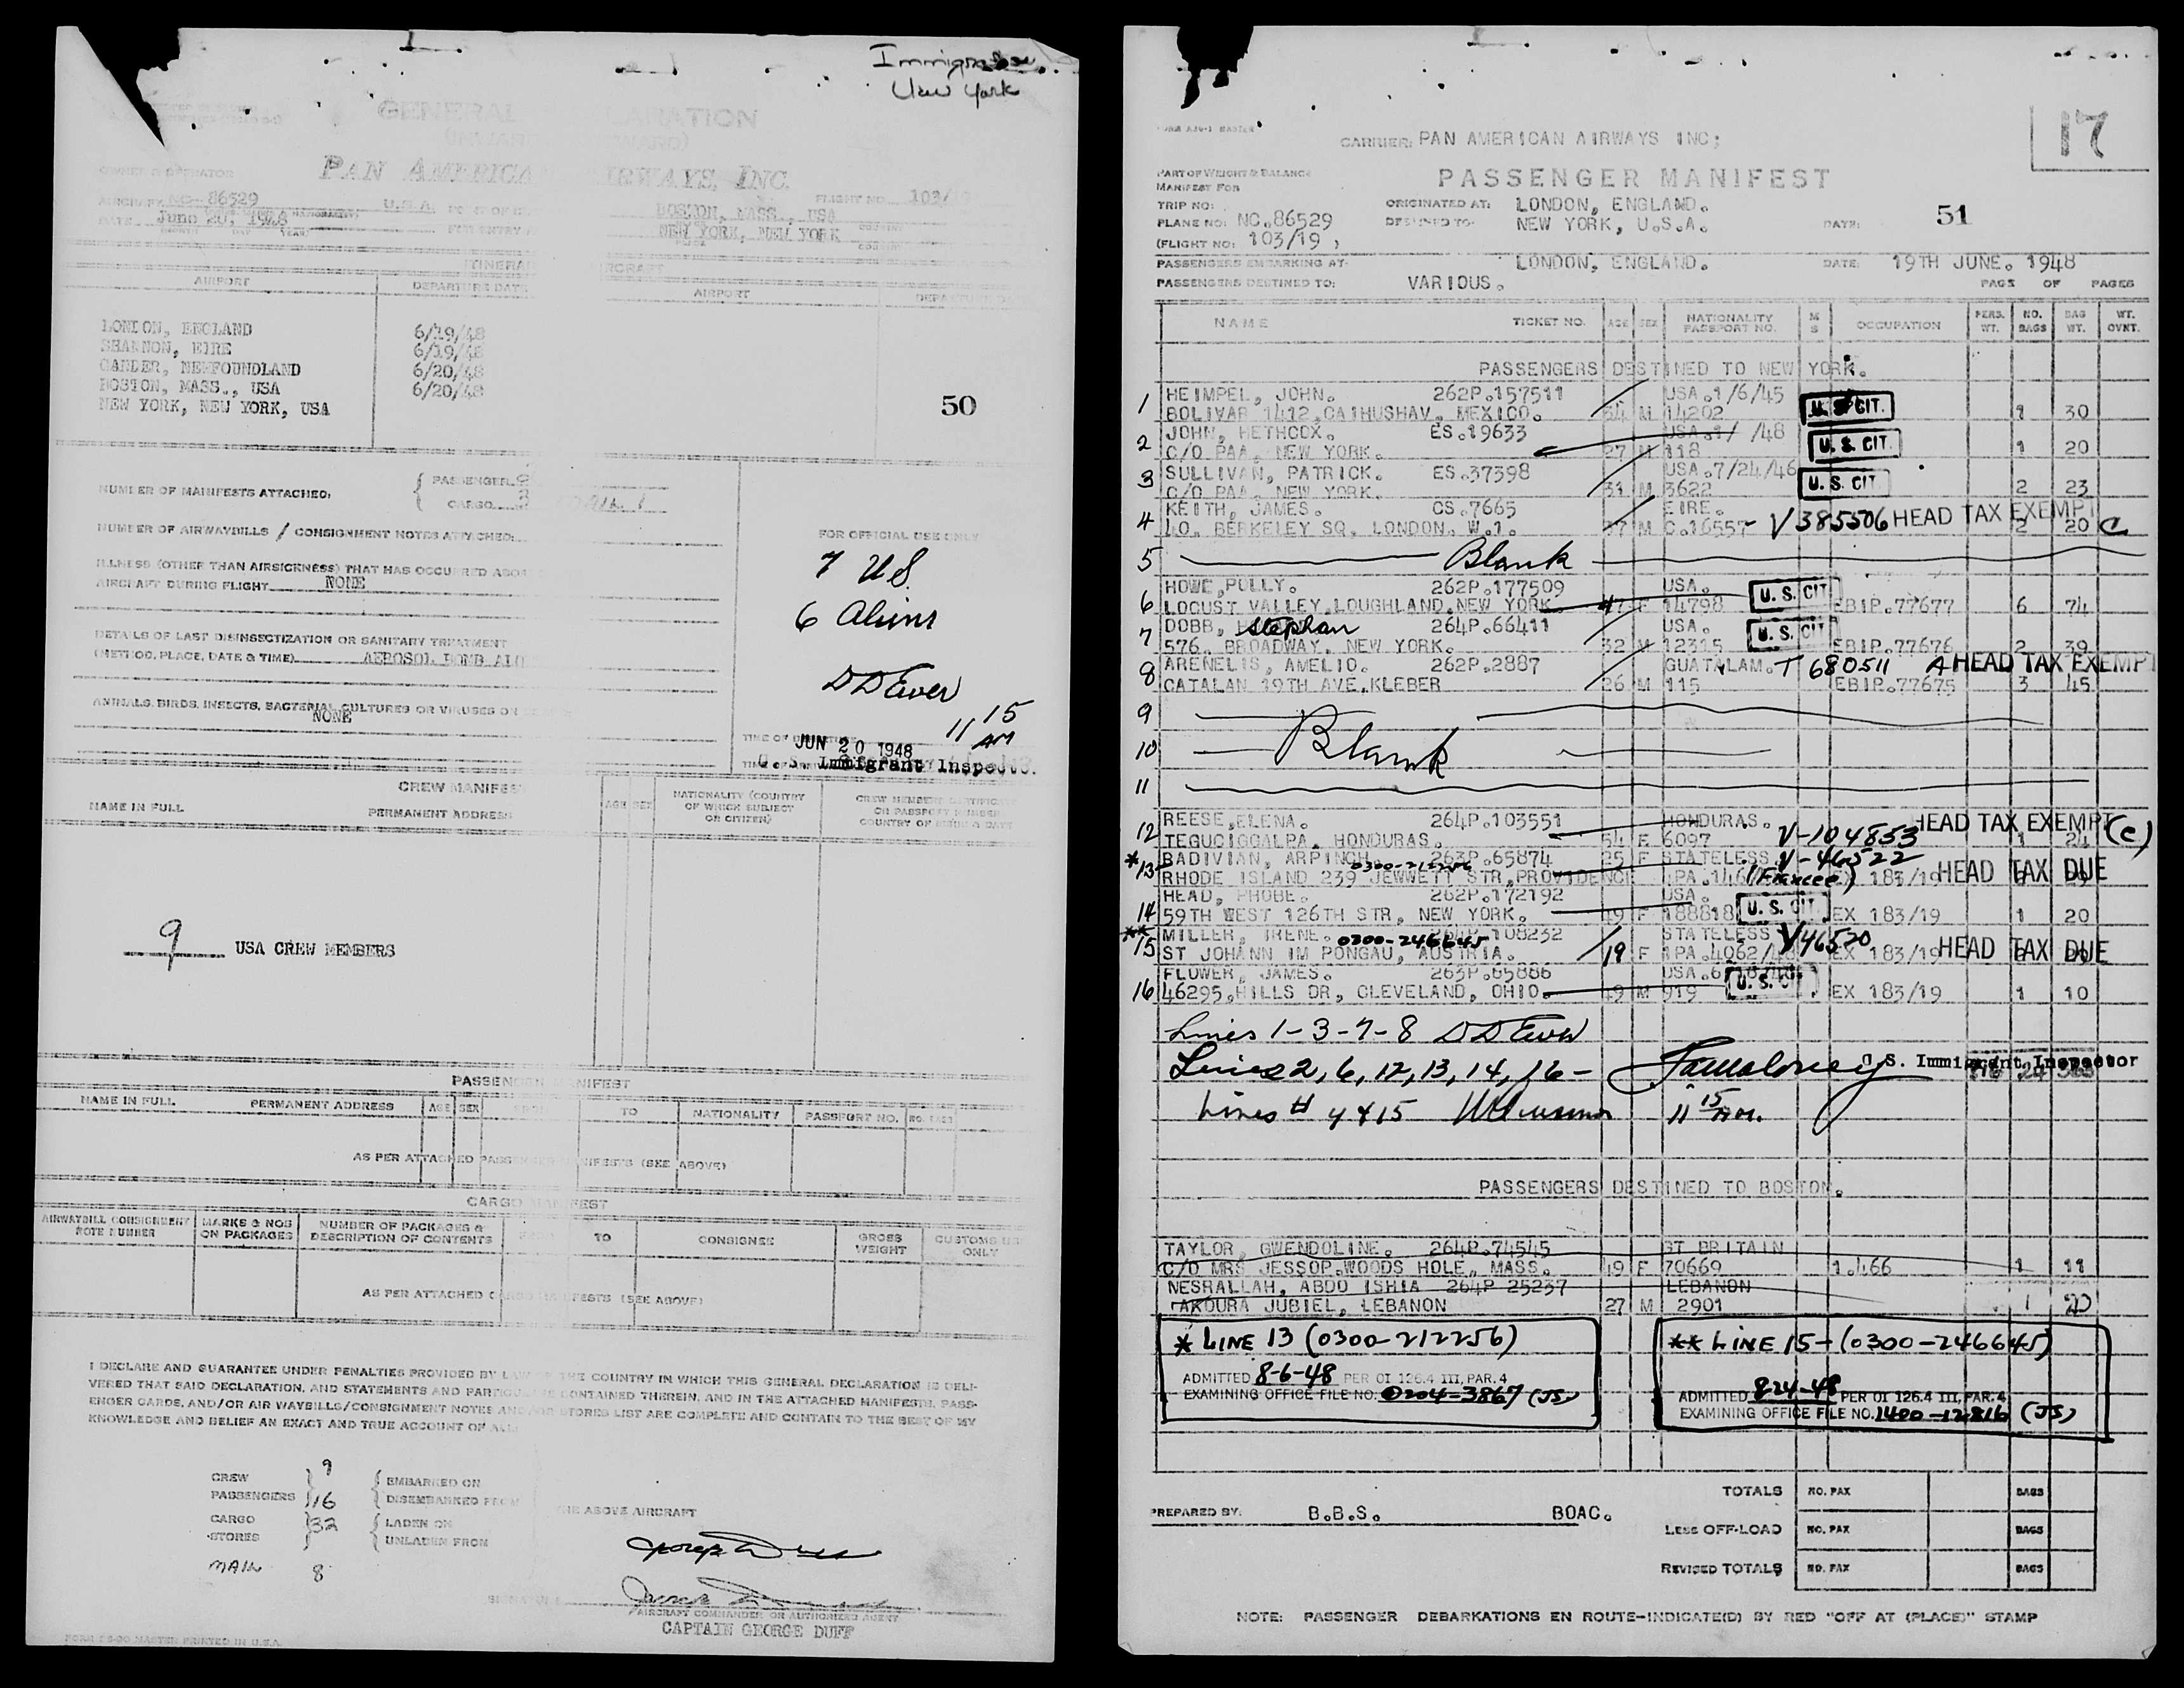 Immigration
New York
GENERAL
PAN AMERICA RWAYS, INC.
OWNER OR OPERATOR
AIRCRAFT NC- 86529 U.S.A. FLIGHT NO. 103/
DATE June 20, 1948
BOSTON, MASS., USA
NEW YORK, NEW YORK
AIRPORT DEPARTURE DATE AIRPORT
LONDON, ENGLAND 6/19/48
SHANNON, EIRE 6/19/48
GANDER, NEWFOUNDLAND 6/20/48
BOSTON, MASS., USA 6/20/48
NEW YORK, NEW YORK, USA
50
NUMBER OF MANIFESTS ATTACHED:
PASSENGER
CARGO
NUMBER OF AIRWAYBILLS / CONSIGNMENT NOTES ATTACHED:
ILLNESS (OTHER THAN AIRSICKNESS) THAT HAS OCCURRED
AIRCRAFT DURING FLIGHT NONE
DETAILS OF LAST DISINSECTIZATION OR SANITARY TREATMENT
(METHOD, PLACE, DATE & TIME) AEROSOL BOMB
ANIMALS, BIRDS, INSECTS, BACTERIAL CULTURES OR VIRUSES ON
NONE
FOR OFFICIAL USE ONLY
7 US
6 Aliens
D D Ewer
11 15 AM
JUN 20 1948
U. S. Immigrant Inspector
CREW MANIFEST
NAME IN FULL PERMANENT ADDRESS AGE SEX NATIONALITY (COUNTRY OF WHICH SUBJECT OR CITIZEN)
9 USA CREW MEMBERS
PASSENGER MANIFEST
NAME IN FULL PERMANENT ADDRESS AGE SEX TO NATIONALITY PASSPORT NO.
AS PER ATTACHED PASSENGER MANIFESTS (SEE ABOVE)
CARGO MANIFEST
AIRWAYBILL CONSIGNMENT NOTE NUMBER MARKS & NOS ON PACKAGES NUMBER OF PACKAGES & DESCRIPTION OF CONTENTS TO CONSIGNEE GROSS WEIGHT CUSTOMS USE ONLY
AS PER ATTACHED CARGO MANIFESTS (SEE ABOVE)
I DECLARE AND GUARANTEE UNDER PENALTIES PROVIDED BY LAW THE COUNTRY IN WHICH THIS GENERAL DECLARATION IS DELI-
VERED THAT SAID DECLARATION, AND STATEMENTS AND PARTICULARS CONTAINED THEREIN, AND IN THE ATTACHED MANIFESTS, PASS-
ENGER CARDS, AND/OR AIR WAYBILLS/CONSIGNMENT NOTES AND/OR STORES LIST ARE COMPLETE AND CONTAIN TO THE BEST OF MY
KNOWLEDGE AND BELIEF AN EXACT AND TRUE ACCOUNT OF ALL
CREW 9 EMBARKED ON
PASSENGERS 16 DISEMBARKED FROM THE ABOVE AIRCRAFT
CARGO 32 LADEN ON
STORES UNLADEN FROM
MAIL 8
AIRCRAFT COMMANDER OR AUTHORIZED AGENT
CAPTAIN GEORGE DUFF
17
CARRIER: PAN AMERICAN AIRWAYS INC;
PART OF WEIGHT & BALANCE
MANIFEST FOR
PASSENGER MANIFEST
TRIP NO: ORIGINATED AT: LONDON, ENGLAND.
PLANE NO: NC.86529 DESTINED TO- NEW YORK, U.S.A. DATE: 51
(FLIGHT NO: 103/19 )
PASSENGERS EMBARKING AT- LONDON, ENGLAND. DATE: 19TH JUNE. 1948
PASSENGERS DESTINED TO: VARIOUS. PAGE OF PAGES
NAME TICKET NO. AGE SEX NATIONALITY PASSPORT NO. M S OCCUPATION PERS. WT. NO. BAGS BAG WT. WT. OVNT.
PASSENGERS DESTINED TO NEW YORK.
1 HEIMPEL, JOHN. 262P.157511 USA.1/6/45
BOLIVAR 1412,CAIHUSHAV, MEXICO. 54 M 14202 U. S. CIT. 1 30
2 JOHN, HETHCOX. ES.19633 USA.1/ /48
C/O PAA, NEW YORK. 27 M 118 U. S. CIT. 1 20
3 SULLIVAN, PATRICK. ES.37398 USA.7/24/46
C/O PAA, NEW YORK. 31 M 3622 U. S. CIT. 2 23
4 KEITH, JAMES. CS.7665 EIRE.
40, BERKELEY SQ, LONDON, W.1. 37 M C.16557 - V385506 HEAD TAX EXEMPT 2 20 C
5 Blank
6 HOWE,POLLY. 262P.177509 USA.
LOCUST VALLEY,LOUGHLAND,NEW YORK. 47 F 14798 U. S. CIT. EBIP.77677 6 74
7 DOBB, Stephan 264P.66411 USA.
576, BROADWAY, NEW YORK. 32 M 12315 U. S. CIT. EBIP.77676 2 39
8 ARENELIS, AMELIO. 262P.2887 GUATALAM. T 680511 A HEAD TAX EXEMPT
CATALAN 19TH AVE,KLEBER 26 M 115 EBIP.77675 3 45
9
10 Blank
11
12 REESE,ELENA. 264P.103551 HONDURAS. HEAD TAX EXEMPT (C)
TEGUCIGGALPA, HONDURAS. 54 F 6097 V-104853 1 24
*13 BADIVIAN, ARPINCH. 0300-212256 263P.65874 25 F STATELESS V-46522
RHODE ISLAND 239 JEWWETT STR,PROVIDENCE (Fiancee) 183/19 HEAD TAX DUE
14 HEAD, PHOBE. 262P.172192 USA.
59TH WEST 126TH STR, NEW YORK. 19 F 188818 U. S. CIT. EX 183/19 1 20
** 15 MILLER, IRENE. 0300-246645 264P.108232 STATELESS V46520
ST JOHANN IM PONGAU, AUSTRIA. 19 F IPA.4062/48 EX 183/19 HEAD TAX DUE
16 FLOWER, JAMES. 263P.65886 USA.6
46295,HILLS DR, CLEVELAND, OHIO. 49 M 919 U. S. CIT. EX 183/19 1 10
Lines 1-3-7-8 D D Ewer
Lines 2, 6, 12, 13, 14, 16 - U.S. Immigrant Inspector
Lines # 4 & 15 11 15 AM.
PASSENGERS DESTINED TO BOSTON.
TAYLOR, GWENDOLINE. 264P.74545 GT BRITAIN
C/O MRS JESSOP,WOODS HOLE, MASS. 19 F 70669 1.466 1 11
NESRALLAH, ABDO ISHIA 264P 25237 LEBANON
AKOURA JUBIEL, LEBANON 27 M 2901 1 20
* LINE 13 (0300-212256)
ADMITTED 8-6-48 PER OI 126.4 III, PAR. 4
EXAMINING OFFICE FILE NO. 0204-3867 (JS)
** LINE 15 - (0300-246645)
ADMITTED 8-24-48 PER OI 126.4 III, PAR. 4
EXAMINING OFFICE FILE NO. 1400-12816 (JS)
TOTALS NO. PAX BAGS
PREPARED BY: B.B.S. BOAC.
LESS OFF-LOAD NO. PAX BAGS
REVISED TOTALS NO. PAX BAGS
NOTE: PASSENGER DEBARKATIONS EN ROUTE-INDICATE(D) BY RED "OFF AT (PLACE)" STAMP